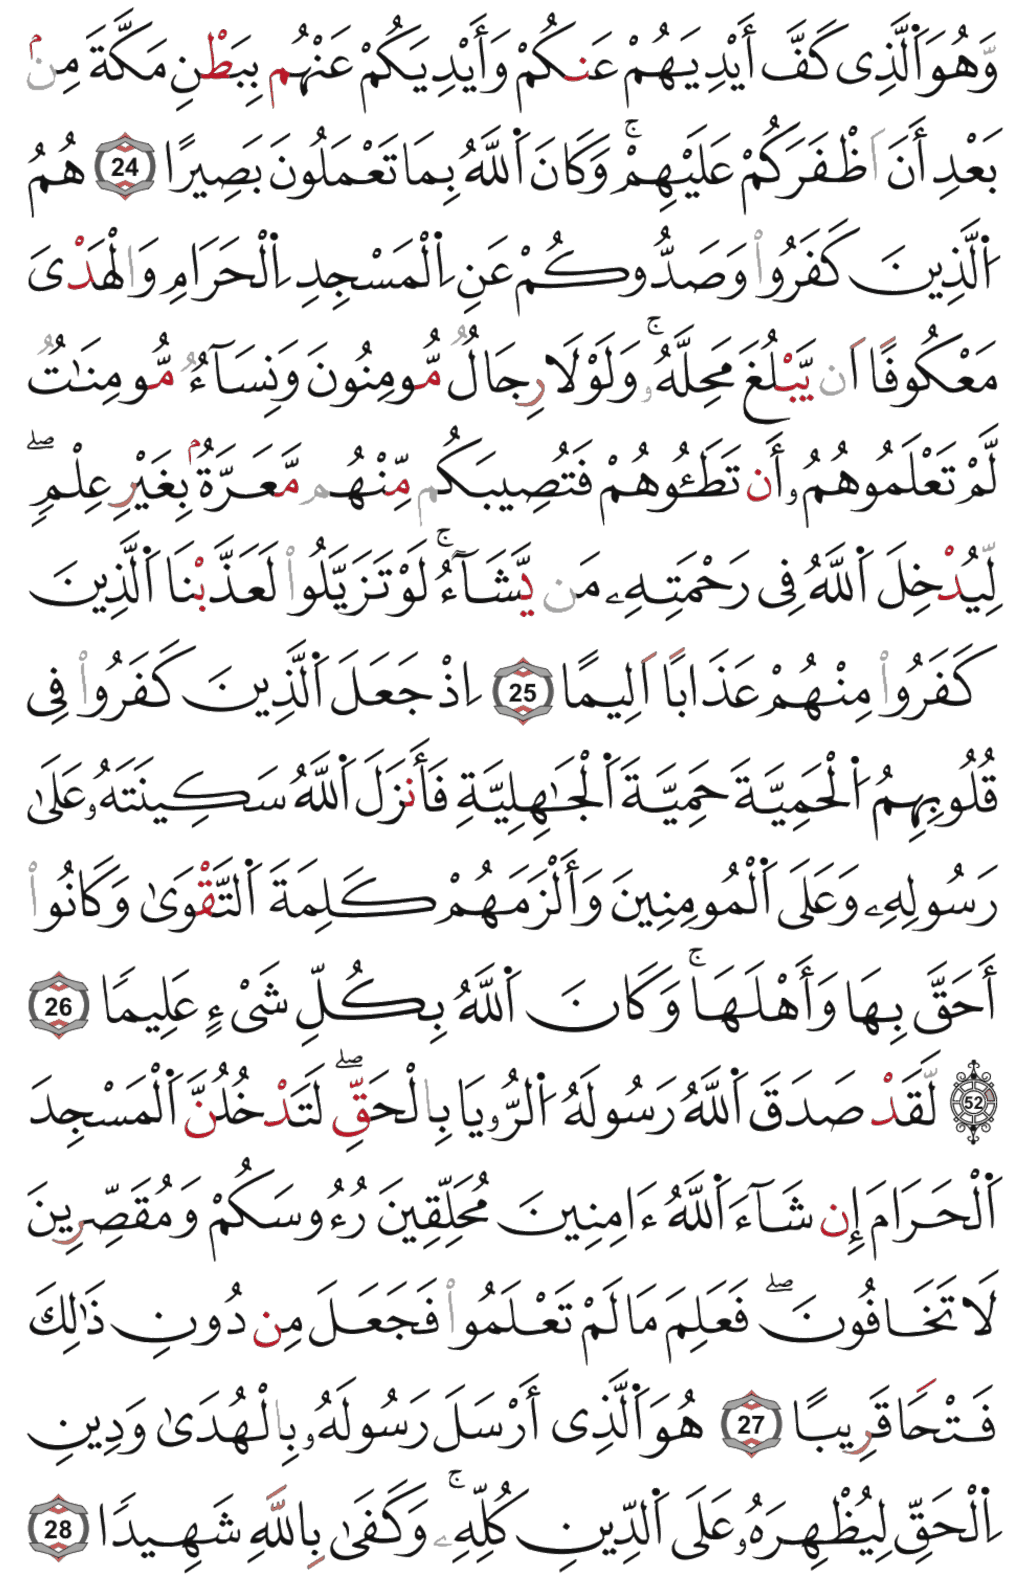 وَّهُوَ اَ۬لَّذِى كَفَّ أَيْدِيَهُمْ عَنكُمْ وَأَيْدِيَكُمْ عَنْهُم بِبَطْنِ مَكَّةَ مِنۢ
بَعْدِ أَنَ اَظْفَرَكُمْ عَلَيْهِمْۚ وَكَانَ اَ۬للَّهُ بِمَا تَعْمَلُونَ بَصِيرًا 24 هُمُ
اُ۬لَّذِينَ كَفَرُواْ وَصَدُّوكُمْ عَنِ اِ۬لْمَسْجِدِ اِ۬لْحَرَامِ وَالْهَدْىَ
مَعْكُوفًا اَنْ يَّبْلُغَ مَحِلَّهُۥۚ وَلَوْلَا رِجَالٌ مُّومِنُونَ وَنِسَآءٌ مُّومِنَٰتٌ
لَّمْ تَعْلَمُوهُمُۥ أَن تَطَـُٔوهُمْ فَتُصِيبَكُم مِّنْهُم مَّعَرَّةُۢ بِغَيْرِ عِلْمٍۖ
لِّيُدْخِلَ اَ۬للَّهُ فِى رَحْمَتِهِۦ مَن يَّشَآءُۚ لَوْ تَزَيَّلُواْ لَعَذَّبْنَا اَ۬لَّذِينَ
كَفَرُواْ مِنْهُمْ عَذَابًا اَلِيمًا 25 اِذْ جَعَلَ اَ۬لَّذِينَ كَفَرُواْ فِى
قُلُوبِهِمُ اُ۬لْحَمِيَّةَ حَمِيَّةَ اَ۬لْجَٰهِلِيَّةِ فَأَنزَلَ اَ۬للَّهُ سَكِينَتَهُۥ عَلَىٰ
رَسُولِهِۦ وَعَلَى اَ۬لْمُومِنِينَ وَأَلْزَمَهُمْ كَلِمَةَ اَ۬لتَّقْوَىٰ وَكَانُواْ
أَحَقَّ بِهَا وَأَهْلَهَاۚ وَكَانَ اَ۬للَّهُ بِكُلِّ شَىْءٍ عَلِيمًا 26
52 لَّقَدْ صَدَقَ اَ۬للَّهُ رَسُولَهُ اُ۬لرُّءْيَا بِالْحَقِّۖ لَتَدْخُلُنَّ اَ۬لْمَسْجِدَ
اَ۬لْحَرَامَ إِن شَآءَ اَ۬للَّهُ ءَامِنِينَ مُحَلِّقِينَ رُءُوسَكُمْ وَمُقَصِّرِينَ
لَا تَخَافُونَۖ فَعَلِمَ مَا لَمْ تَعْلَمُواْ فَجَعَلَ مِن دُونِ ذَٰلِكَ
فَتْحًا قَرِيبًا 27 هُوَ اَ۬لَّذِى أَرْسَلَ رَسُولَهُۥ بِالْهُدَىٰ وَدِينِ
اِ۬لْحَقِّ لِيُظْهِرَهُۥ عَلَى اَ۬لدِّينِ كُلِّهِۦۚ وَكَفَىٰ بِاللَّهِ شَهِيدًا 28